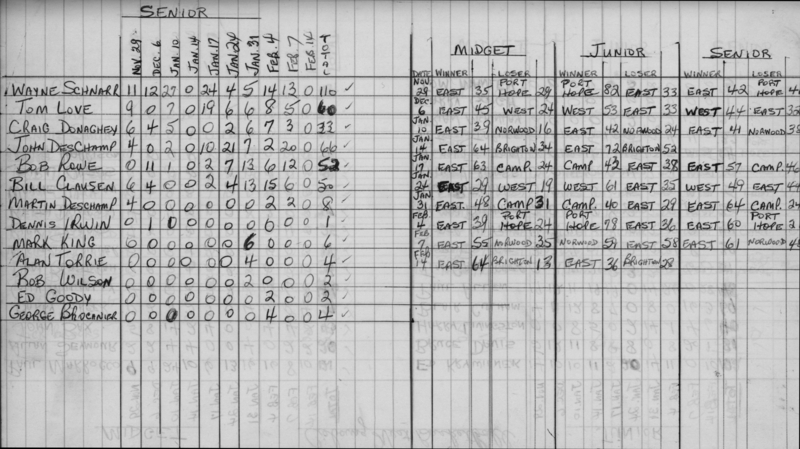 SENIOR
NOV. 29 DEC. 6 JAN. 10 JAN. 14 JAN. 17 JAN 24 JAN. 31 FEB. 4 FEB. 7 FEB 14 TOT
WAYNE SCHNARR 11 12 27 0 24 4 5 14 13 0 110 ✓
TOM LOVE 9 0 7 0 19 6 6 8 5 0 60 ✓
CRAIG DONAGHEY 6 4 5 0 0 2 6 7 3 0 33 ✓
JOHN DESCHAMP 4 0 2 0 10 21 7 2 20 0 66 ✓
BOB ROWE 0 11 1 0 2 7 13 6 12 0 52 ✓
BILL CLAUSEN 6 4 0 0 2 4 13 15 6 0 50 ✓
MARTIN DESCHAMP 4 0 0 0 0 0 0 2 2 0 8 ✓
DENNIS IRWIN 0 1 0 0 0 0 0 0 0 0 1 ✓
MARK KING 0 0 0 0 0 0 6 0 0 0 6 ✓
ALAN TORRIE 0 0 0 0 0 0 4 0 0 0 4 ✓
BOB WILSON 0 0 0 0 0 0 2 0 0 0 2 ✓
ED GOODY 0 0 0 0 0 0 0 2 0 0 2 ✓
GEORGE BROCANIER 0 0 0 0 0 0 0 4 0 0 4 ✓
MIDGET JUNIOR SENIOR
DATE WINNER LOSER WINNER LOSER WINNER LOSER
NOV. 29 EAST 35 PORT HOPE 29 PORT HOPE 82 EAST 33 EAST 42 PORT HOPE
DEC. 6 EAST 45 WEST 24 WEST 53 EAST 33 WEST 44 EAST
JAN. 10 EAST 39 NORWOOD 16 EAST 42 NORWOOD 24 EAST 41 NORWOOD
JAN. 14 EAST 64 BRIGHTON 34 EAST 72 BRIGHTON 52
JAN. 17 EAST 63 CAMP. 24 CAMP 42 EAST 38 EAST 57 CAMP.
JAN. 24 EAST 29 WEST 19 WEST 61 EAST 35 WEST 49 EAST
JAN 31 EAST. 48 CAMP 31 CAMP. 40 EAST 29 EAST 64 CAMP.
FEB. 4 EAST 39 PORT HOPE 24 PORT HOPE 78 EAST 36 EAST 60 PORT HOPE
FEB 7 EAST 55 NORWOOD 35 NORWOOD 59 EAST 58 EAST 61 NORWOOD
FEB 14 EAST 64 BRIGHTON 13 EAST 36 BRIGHTON 28